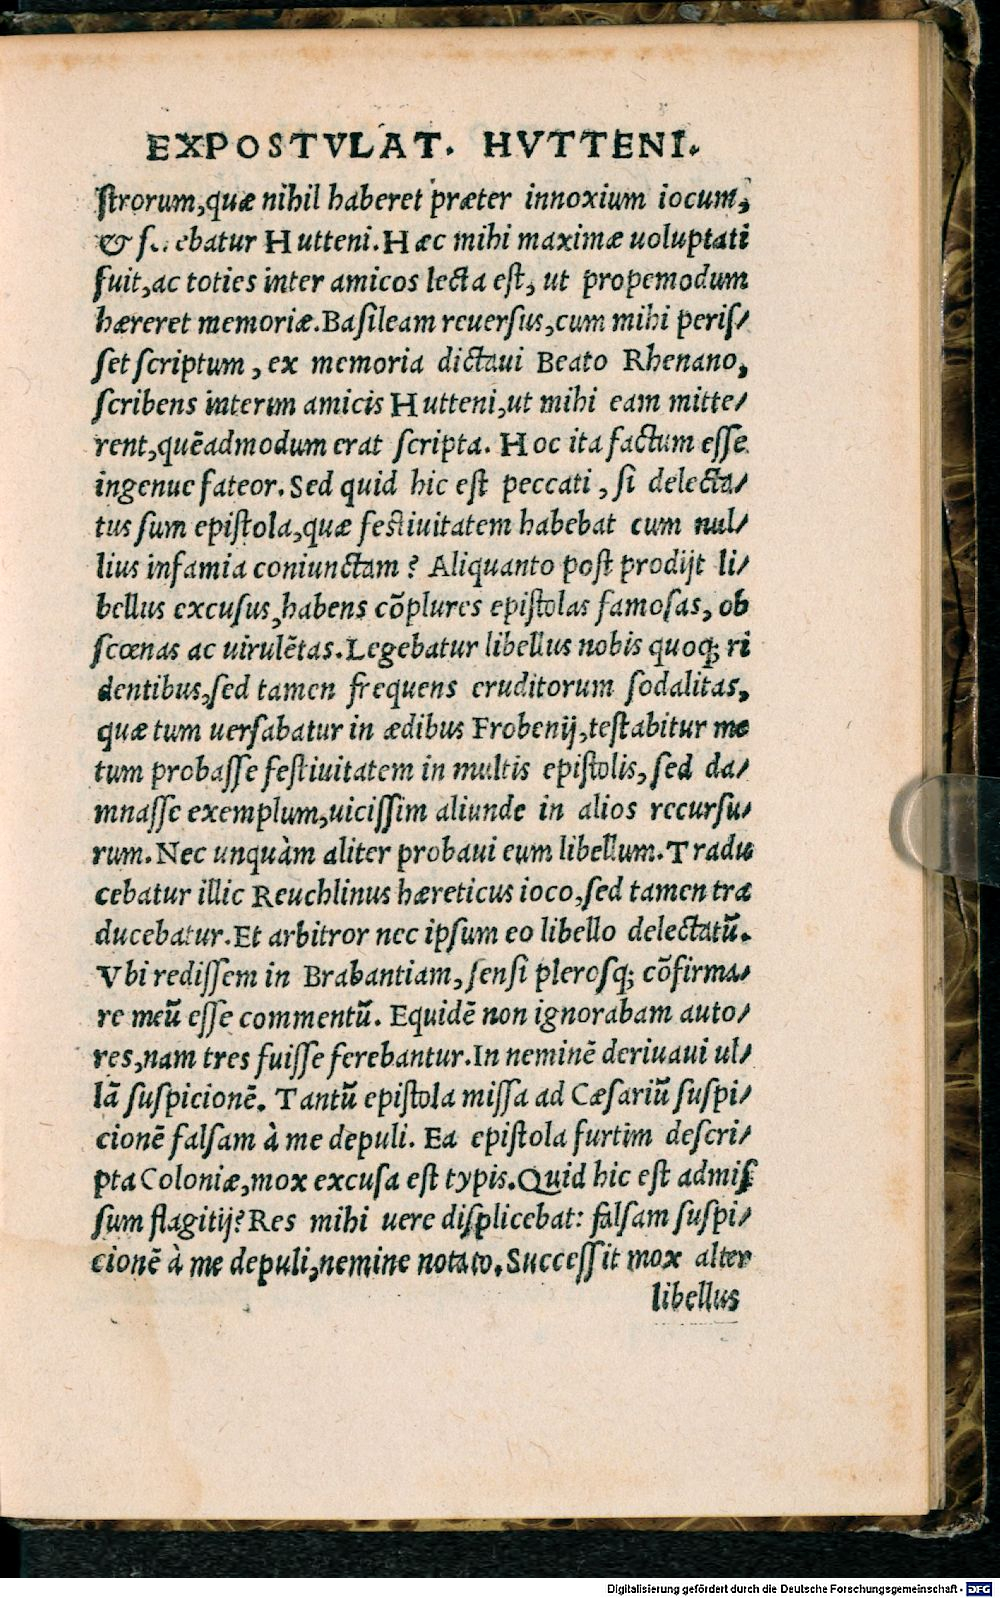 EXPOSTVLAT. HVTTENI.
ſtrorum,quæ nihil haberet præter innoxium iocum,
& Hutteni.Hæc mihi maximæ uoluptati
fuit,ac toties inter amicos lecta eſt, ut propemodum
hæreret memoriæ.Baſileam reuerſus,cum mihi periſ/
ſet ſcriptum, ex memoria dictaui Beato Rhenano,
ſcribens interim amicis Hutteni,ut mihi eam mitte/
rent,quẽadmodum erat ſcripta. Hoc ita factum eſſe
ingenue fateor.Sed quid hic eſt peccati, ſi delecta/
tus ſum epiſtola,quæ feſtiuitatem habebat cum nul/
lius infamia coniunctam? Aliquanto poſt prodijt li/
bellus excuſus,habens cõplures epiſtolas famoſas, ob
ſcœnas ac uirulẽtas.Legebatur libellus nobis quoq; ri
dentibus,ſed tamen frequens eruditorum ſodalitas,
quæ tum uerſabatur in ædibus Frobenij,teſtabitur me
tum probaſſe feſtiuitatem in multis epiſtolis, ſed da/
mnaſſe exemplum,uiciſſim aliunde in alios recurſu/
rum.Nec unquàm aliter probaui eum libellum.Tradu
cebatur illic Reuchlinus hæreticus ioco,ſed tamen tra
ducebatur.Et arbitror nec ipſum eo libello delectatũ.
Vbi rediſſem in Brabantiam, ſenſi pleroſq; cõfirma/
re meũ eſſe commentũ. Equidẽ non ignorabam auto/
res,nam tres fuiſſe ferebantur.In neminẽ deriuaui ul/
lã ſuſpicionẽ. Tantũ epiſtola miſſa ad Cæſariũ ſuſpi/
cionẽ falſam à me depuli. Ea epiſtola furtim deſcri/
pta Coloniæ,mox excuſa eſt typis.Quid hic eſt admiſ
ſum flagitij?Res mihi uere diſplicebat: falſam ſuſpi/
cionẽ à me depuli,nemine notato.Succeſſit mox alter
libellus
Digitalisierung gefördert durch die Deutsche Forschungsgemeinschaft - DFG